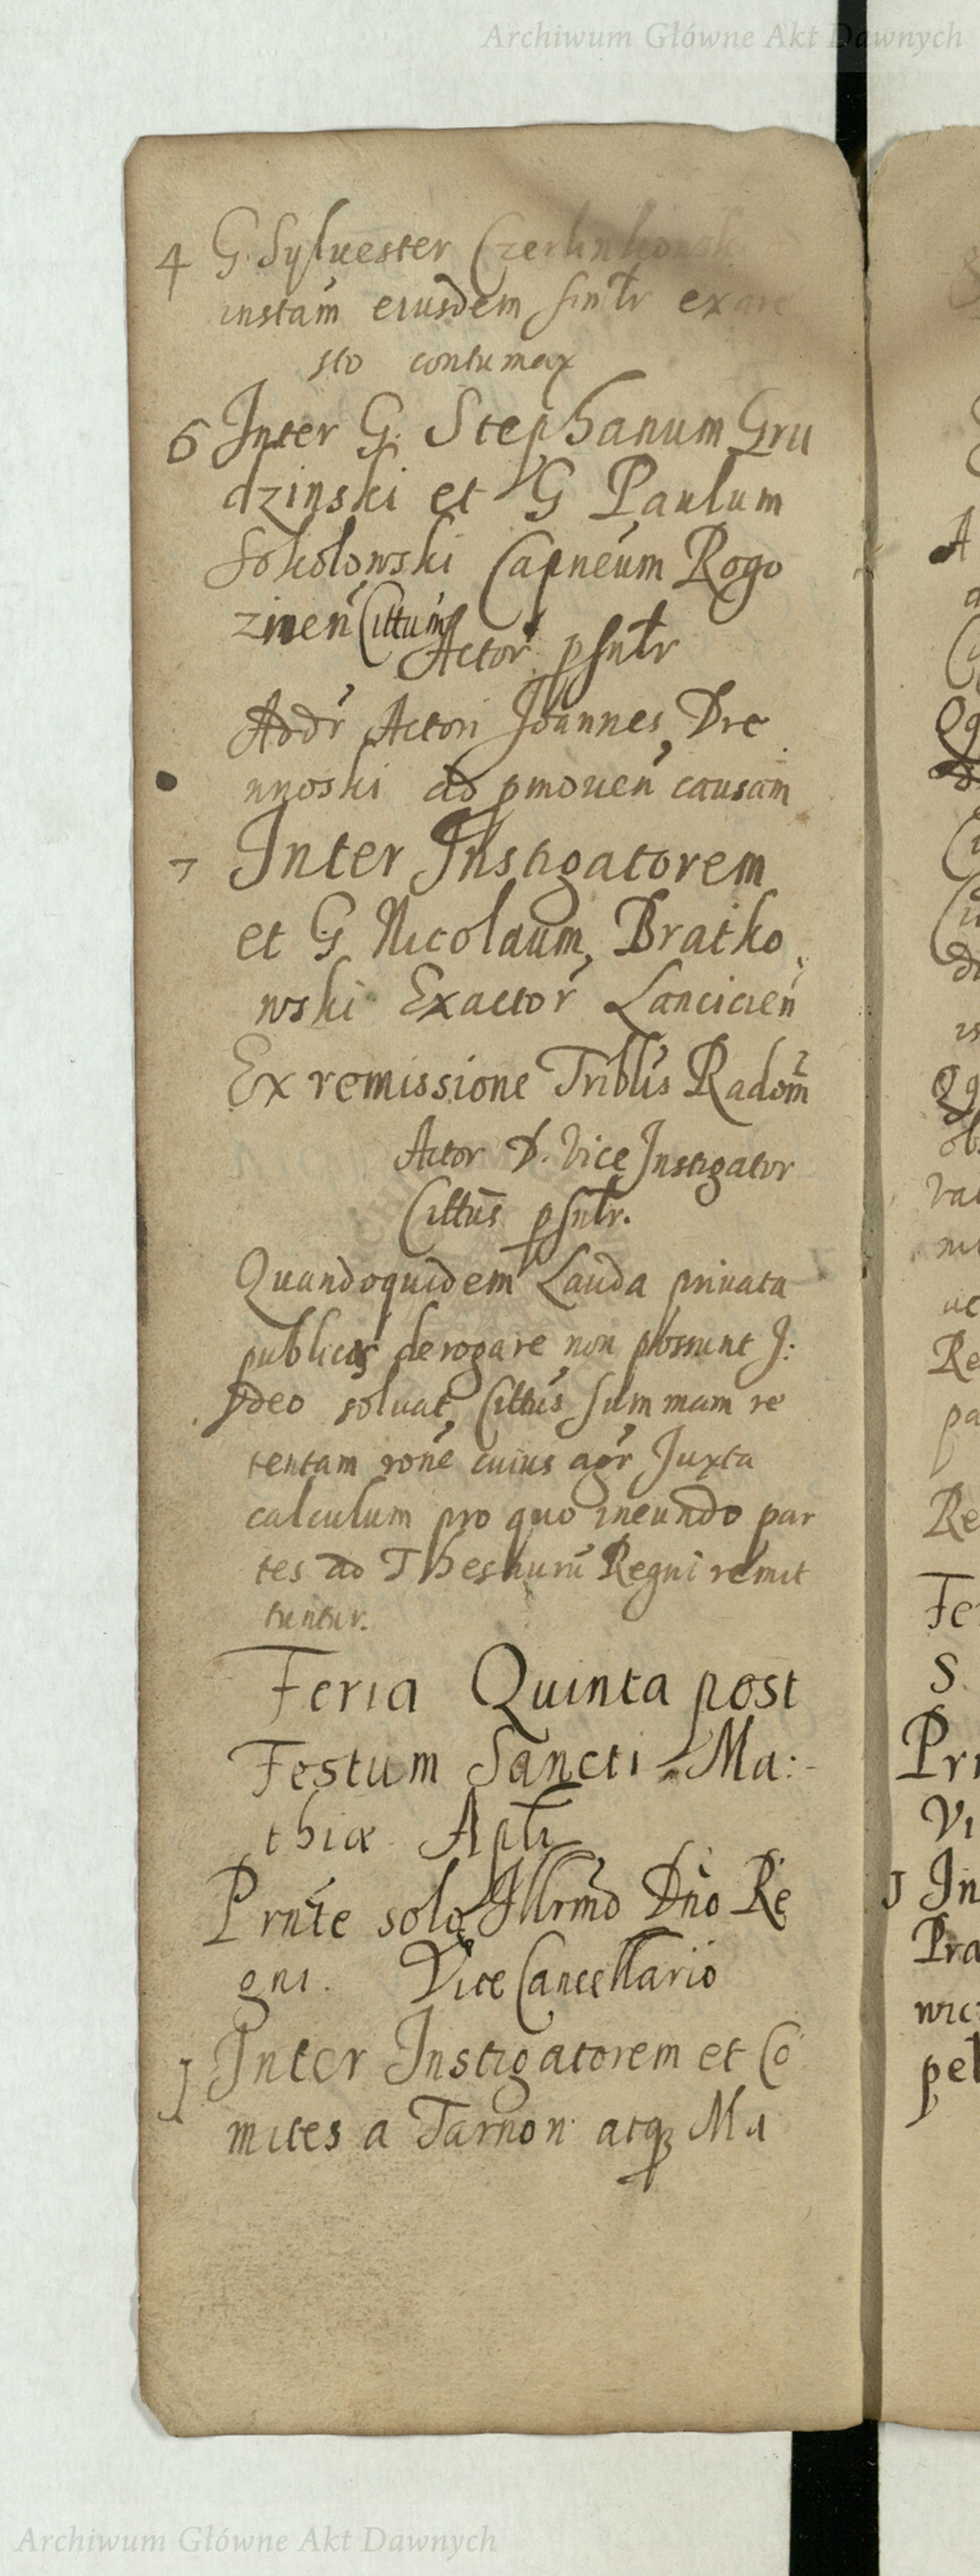 Archiwum Główne Akt Dawnych
4 G. Syluester
instam eiusdem simlr ex are
sto contumax
6 Inter G. Stephanum Gru
dzinski et G Paulum
Sokolowski Capneum Rogo
zinen Cittum
Actor psntr
Addr Actori Joannes Dre
nnoski ad pmouen causam
7 Inter Instigatorem
et G Nicolaum Bratko
wski Exactor Lancicien
Ex remissione Triblis Radom
Actor D. Vice Instigator
Cittus psntr.
Quandoquidem Lauda priuata
publicis derogare non possunt J:
Ideo soluat Cittus summam re
tentam rone cuius agr Juxta
calculum pro quo ineundo par
tes ad Thesauru Regni remit
tuntur.
Feria Quinta post
Festum Sancti Ma:
thiæ Apli
Prnte solo Illrmo Dno Re
gni. Vice Cancellario
J Inter Instigatorem et Co
mites a Tarnon atq Ma
Archiwum Główne Akt Dawnych